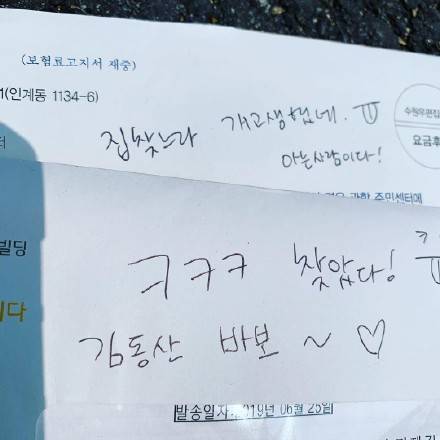 (보험료고지서 재중)
1(인계동 1134-6)
집찾느라 개고생했네. ㅠ
아는사람이다!
수원우편집
요금후
주민센터에
빌딩
ㅋㅋㅋ 찾았다! ㅠ
김동산 바보 ~ ♡
발송일자: 2019년 06월 25일